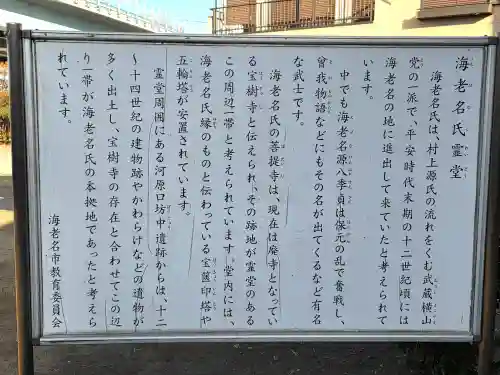 海老名氏霊堂
海老名氏は、村上源氏の流れをくむ武蔵横山
党の一派で、平安時代末期の十二世紀頃には
海老名の地に進出して来ていたと考えられて
います。
中でも海老名源八季貞は保元の乱で奮戦し、
曽我物語などにもその名が出てくるなど有名
な武士です。
海老名氏の菩提寺は、現在は廃寺となってい
る宝樹寺と伝えられ、その跡地が霊堂のある
この周辺一帯と考えられています。堂内には、
海老名氏縁のものと伝わっている宝篋印塔や
五輪塔が安置されています。
霊堂周囲にある河原口坊中遺跡からは、十二
〜十四世紀の建物跡やかわらけなどの遺物が
多く出土し、宝樹寺の存在と合わせてこの辺
り一帯が海老名氏の本拠地であったと考えら
れています。
海老名市教育委員会